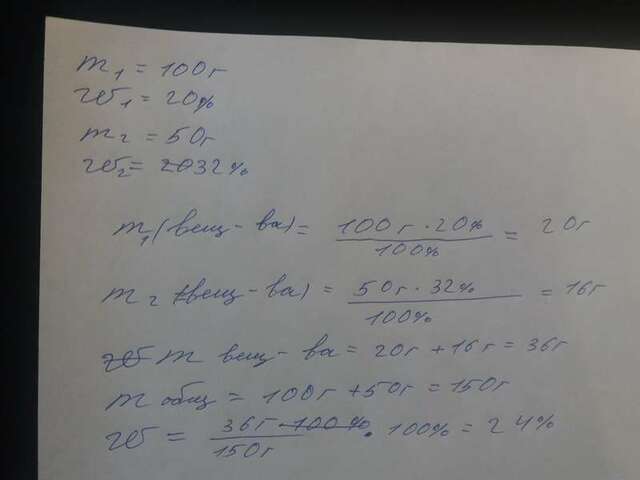 m₁ = 100г
w₁ = 20%
m₂ = 50г
w₂ = 32%
m₁(вещ-ва) = 100г · 20% / 100% = 20г
m₂(вещ-ва) = 50г · 32% / 100% = 16г
m вещ-ва = 20г + 16г = 36г
m общ = 100г + 50г = 150г
w = 36г / 150г · 100% = 24%